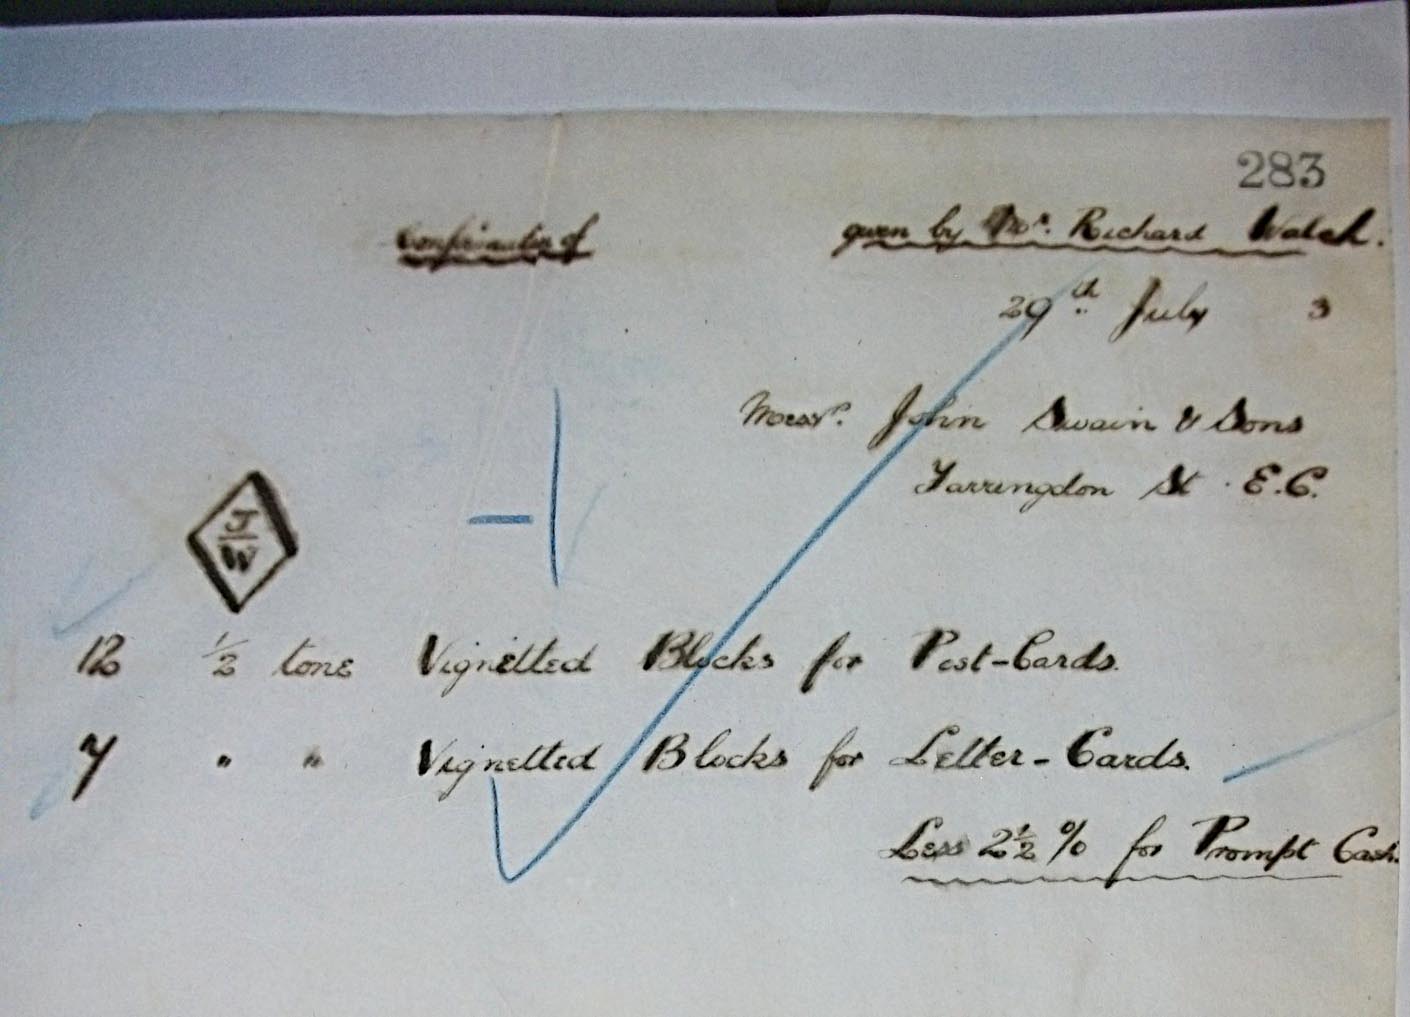 283
Confirmation of given by Mr. Richard Walch.
29th July 3
Messrs. John Swain & Sons
Farringdon St. E.C.
J
W
12 1/2 tone Vignetted Blocks for Post-Cards.
7 " " Vignetted Blocks for Letter-Cards.
Less 2 1/2 % for Prompt Cash.